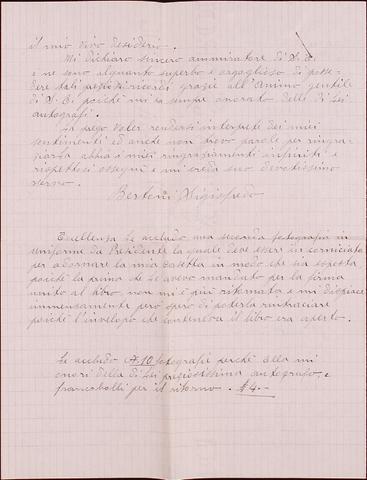 il mio vivo desiderio.
Mi dichiaro sincero ammiratore di V. E.
e ne sono alquanto superbo e orgoglioso di posse-
dere tali preziosi ricordi, grazie all'Animo gentile
di V. E. poiché mi ha sempre onorato delli di Lei
autografi.
La prego voler rendersi interprete dei miei
sentimenti ed anche non trovo parole per ringra-
ziarla, abbia i miei ringraziamenti infiniti e
rispettosi ossequi e mi creda suo devotissimo
servo.
Bertoni
Eccellenza Le accludo una seconda fotografia in
uniforme da Presidente la quale deve essere in corniciata
per adornare la mia saletta in modo che sia esposta,
poiché la prima che Le avevo mandato per la firma
unito al libro, non mi è più ritornata e mi dispiace
immensamente però spero di poterla rintracciare
poiché l'involopo che conteneva il libro era aperto.
Le accludo 10 fotografie perché Ella mi
onori della di Lei preziosissima autografo, e
francobolli per il ritorno. $4.-